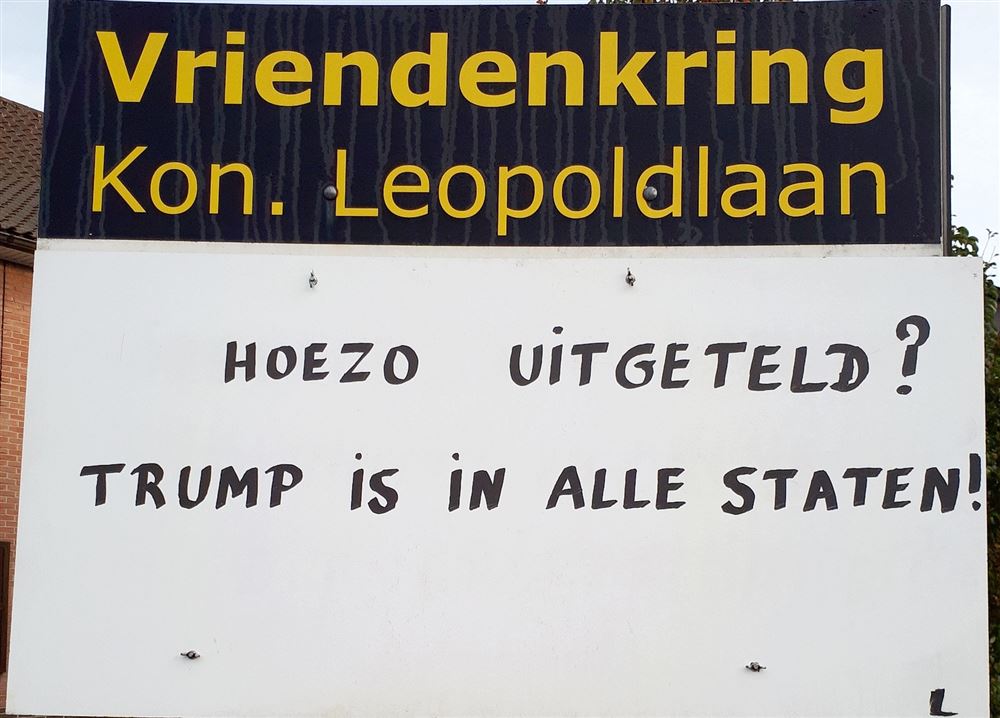 Vriendenkring
Kon. Leopoldlaan
HOEZO UiTGETELD?
TRUMP iS iN ALLE STATEN!
L